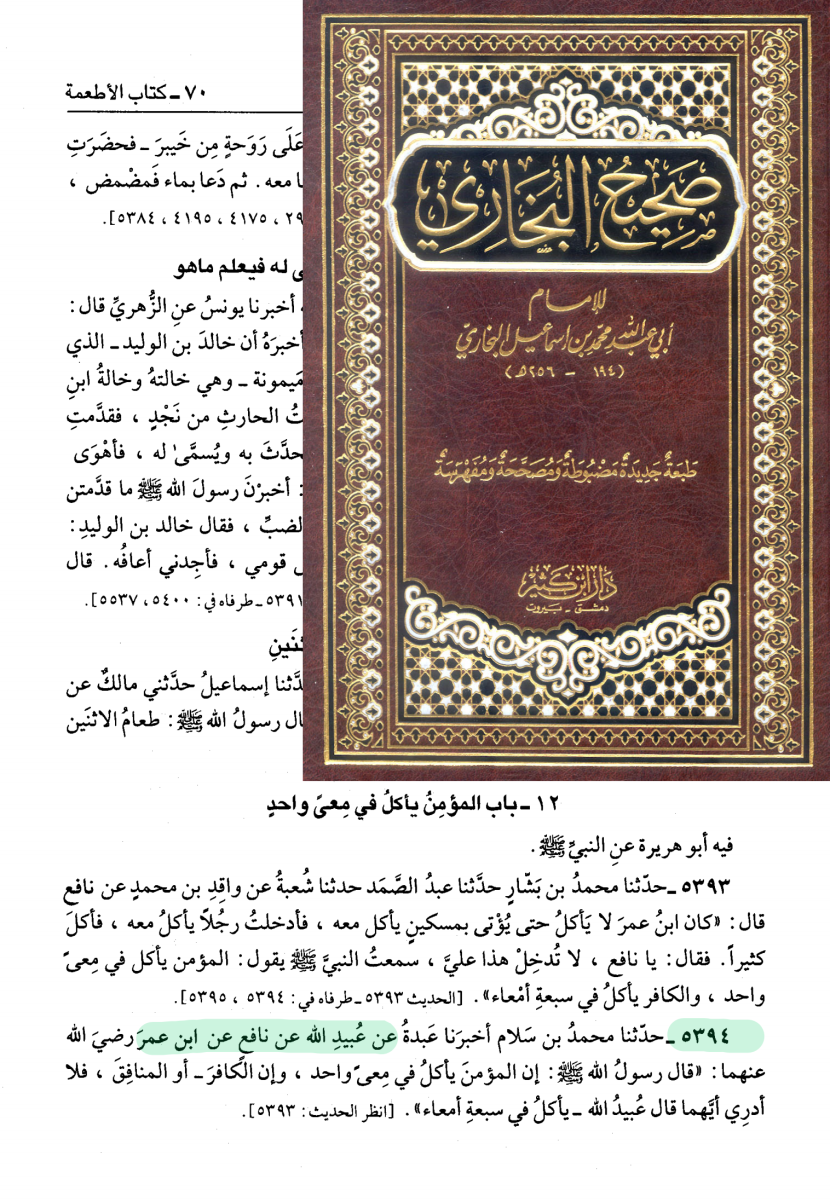 ٧٠ ـ كتاب الأطعمة
عَلَى رَوَحةٍ مِن خَيبرَ ـ فحضَرَتِ
ا معه . ثم دَعا بماء فَمضْمض ،
٢٩ ، ٤١٧٥ ، ٤١٩٥ ، ٥٣٨٤].
ى له فيعلم ماهو
أخبرنا يونسُ عنِ الزُّهريِّ قال :
أخبرَهُ أن خالدَ بن الوليد ـ الذي
مَيمونة ـ وهي خالتهُ وخالةُ ابنِ
تُ الحارثِ من نَجْدٍ ، فقدَّمتِ
حدَّثَ به ويُسمَّىٰ له ، فأهْوَى
: أخبرْنَ رسولَ الله ﷺ ما قدَّمتن
لضبِّ ، فقال خالد بن الوليدِ :
قومي ، فأجِدني أعافُه . قال
٥٣٩١ ـ طرفاه في : ٥٤٠٠ ، ٥٥٣٧].
ثنَينِ
دَّثنا إسماعيلُ حدثَّني مالكٌ عن
ال رسولُ الله ﷺ : طعامُ الاثنَين
صَحِيحُ البُخَارِي
للإمام
أبي عبد الله محمد بن إسماعيل البخاري
(١٩٤ - ٢٥٦هـ)
طَبعَةٌ جَديدَةٌ مَضْبُوطَةٌ وَمُصَحَّحَةٌ وَمُفَهْرَسَةٌ
دار ابن كثير
دمشق - بيروت
١٢ ـ باب المؤمِنُ يأكلُ في مِعىً واحدٍ
فيه أبو هريرة عنِ النبيِّ ﷺ .
٥٣٩٣ ـ حدّثنا محمدُ بن بَشّارٍ حدَّثنا عبدُ الصَّمَد حدثنا شُعبةُ عن واقِدِ بن محمدٍ عن نافع
قال : «كان ابنُ عمرَ لا يَأكلُ حتى يُؤْتى بمسكينٍ يأكل معه ، فأدخلتُ رجُلاً يأكلُ معه ، فأكلَ
كثيراً . فقال : يا نافع ، لا تُدخِلْ هذا عليَّ ، سمعتُ النبيَّ ﷺ يقول : المؤمن يأكل في مِعىً
واحد ، والكافر يأكلُ في سبعةِ أمْعاء» . [الحديث ٥٣٩٣ ـ طرفاه في : ٥٣٩٤ ، ٥٣٩٥].
٥٣٩٤ ـ حدّثنا محمدُ بن سَلام أخبرَنا عَبدةُ عن عُبيدِ الله عن نافعٍ عن ابن عمرَ رضيَ الله
عنهما : «قال رسولُ الله ﷺ : إن المؤمنَ يأكلُ في مِعىً واحد ، وإن الكافرَ ـ أو المنافِقَ ، فلا
أدرِي أيَّهما قال عُبيدُ الله ـ يأكلُ في سبعةِ أمعاء» . [انظر الحديث : ٥٣٩٣].